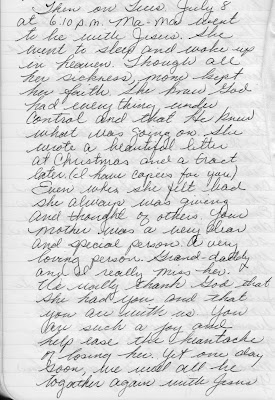 Then on Tues, July 8
at 6:10 p.m. Ma-Ma went
to be with Jesus. She
went to sleep and woke up
in heaven. Though all
her sickness, mom kept
her faith. She knew God
had everything under
control and that He knew
what was going on. She
wrote a beautiful letter
at Christmas and a tract
later. (I have copies for you)
Even when she felt bad
she always was giving
and thought of others. Your
mother was a very dear
and special person. A very
loving person. Grand-daddy
and I really miss her.
We really thank God that
she had you, and that
you are with us. You
are such a joy and
help ease the heartache
of losing her. Yet one day
soon, we will all be
together again with Jesus